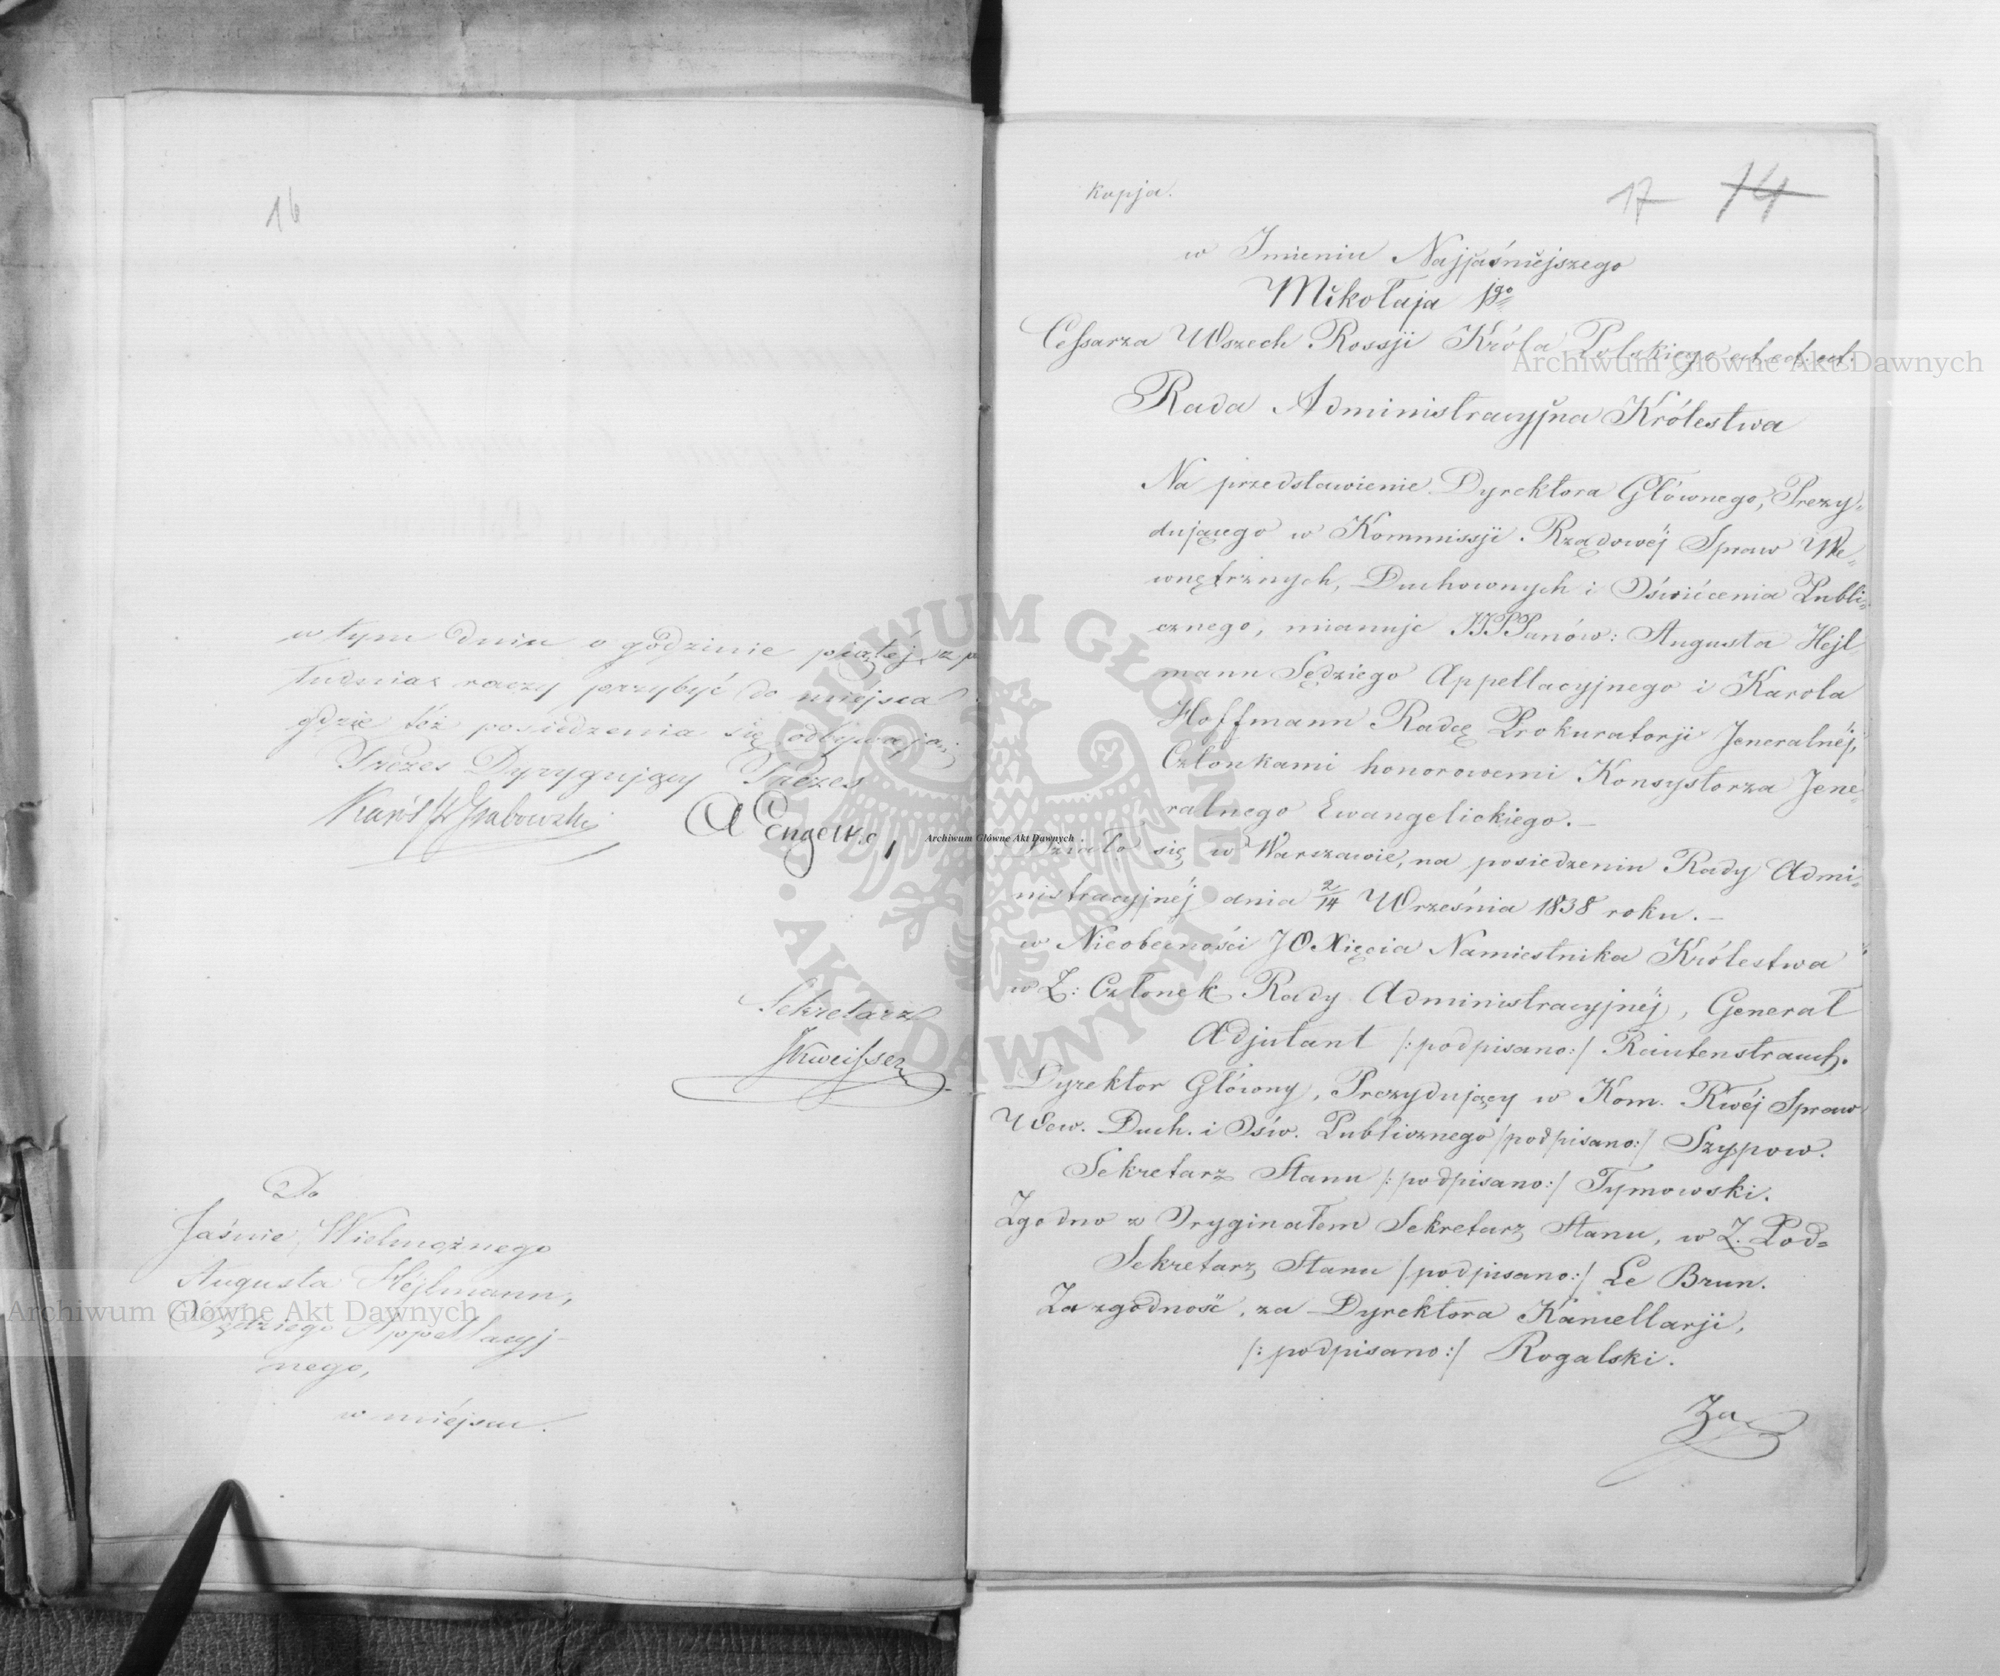 16
w tym dniu o godzinie piątéj z po
łudnia raczy przybyć do miéjsca
gdzie też posiedzenia się odbywają.
Prezes Dyrygujący Prezes
Karól Grabowski
A Engelke,
Sekretarz
Do
Jaśnie Wielmożnego
Augusta Hejlmann,
Sędziego Appellacyj-
nego,
w miéjscu.
kopja.
17 14
w Imieniu Najjaśniejszego
Mikołaja 1go
Cessarza Wszech Rossji Króla Polskiego et. et. et.
Rada Administracyjna Królestwa
Na przedstawienie Dyrektora Głównego, Prezy-
dującego w Kommissji Rządowéj Spraw We-
wnętrznych, Duchownych i Oświecenia Publi-
cznego, mianuje JJPPanów: Augusta Hejl-
mann Sędziego Appellacyjnego i Karola
Hoffmann Radcę Prokuratorji Jeneralnéj,
Członkami honorowemi Konsystorza Jene-
ralnego Ewangelickiego.—
Działo się w Warszawie, na posiedzeniu Rady Admi-
nistracyjnéj dnia 2/14 Września 1838 roku.—
w Nieobecności JO Xięcia Namiestnika Królestwa
w Z: Członek Rady Administracyjnéj, Generał
Adjutant /:podpisano:/ Rautenstrauch.
Dyrektor Główny, Prezydujący w Kom. Rwéj Spraw
Wew. Duch. i Ośw. Publicznego /podpisano:/ Szypow.
Sekretarz Stanu /:podpisano:/ Tymowski.
Zgodno z Oryginałem Sekretarz Stanu, w Z. Pod-
Sekretarz Stanu /podpisano:/ Le Brun.
Za zgodność, za Dyrektora Kancellarji,
/:podpisano:/ Rogalski.
Za
Archiwum Główne Akt Dawnych
Archiwum Główne Akt Dawnych
Archiwum Główne Akt Dawnych
ARCHIWUM GŁÓWNE AKT DAWNYCH